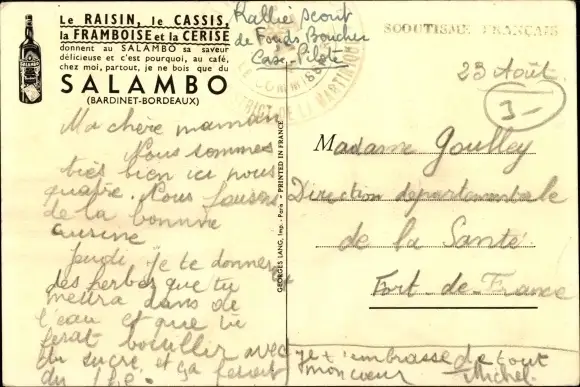 Le RAISIN, le CASSIS,
la FRAMBOISE et la CERISE
donnent au SALAMBO sa saveur
délicieuse et c'est pourquoi, au café,
chez moi, partout, je ne bois que du
SALAMBO
(BARDINET-BORDEAUX)
SALAMBO
Rallié Scout
de Fonds Boucher
Case-Pilote
SCOUTISME FRANÇAIS
DE LA MARTINIQUE
23 Août
3-
Ma chère maman
Nous sommes
très bien ici nous
quatre. Nous faisons
de la bonne
cuisine
Jeudi je te donnerai
des herbes que tu
mettra dans de
l'eau et que tu
ferat bouillir avec
du sucre, et ça feront
du
GEORGES LANG, Imp. - Paris - PRINTED IN FRANCE
Madame Goulley
Direction départementale
de la Santé
Fort-de-France
je t'embrasse de tout
mon coeur Michel